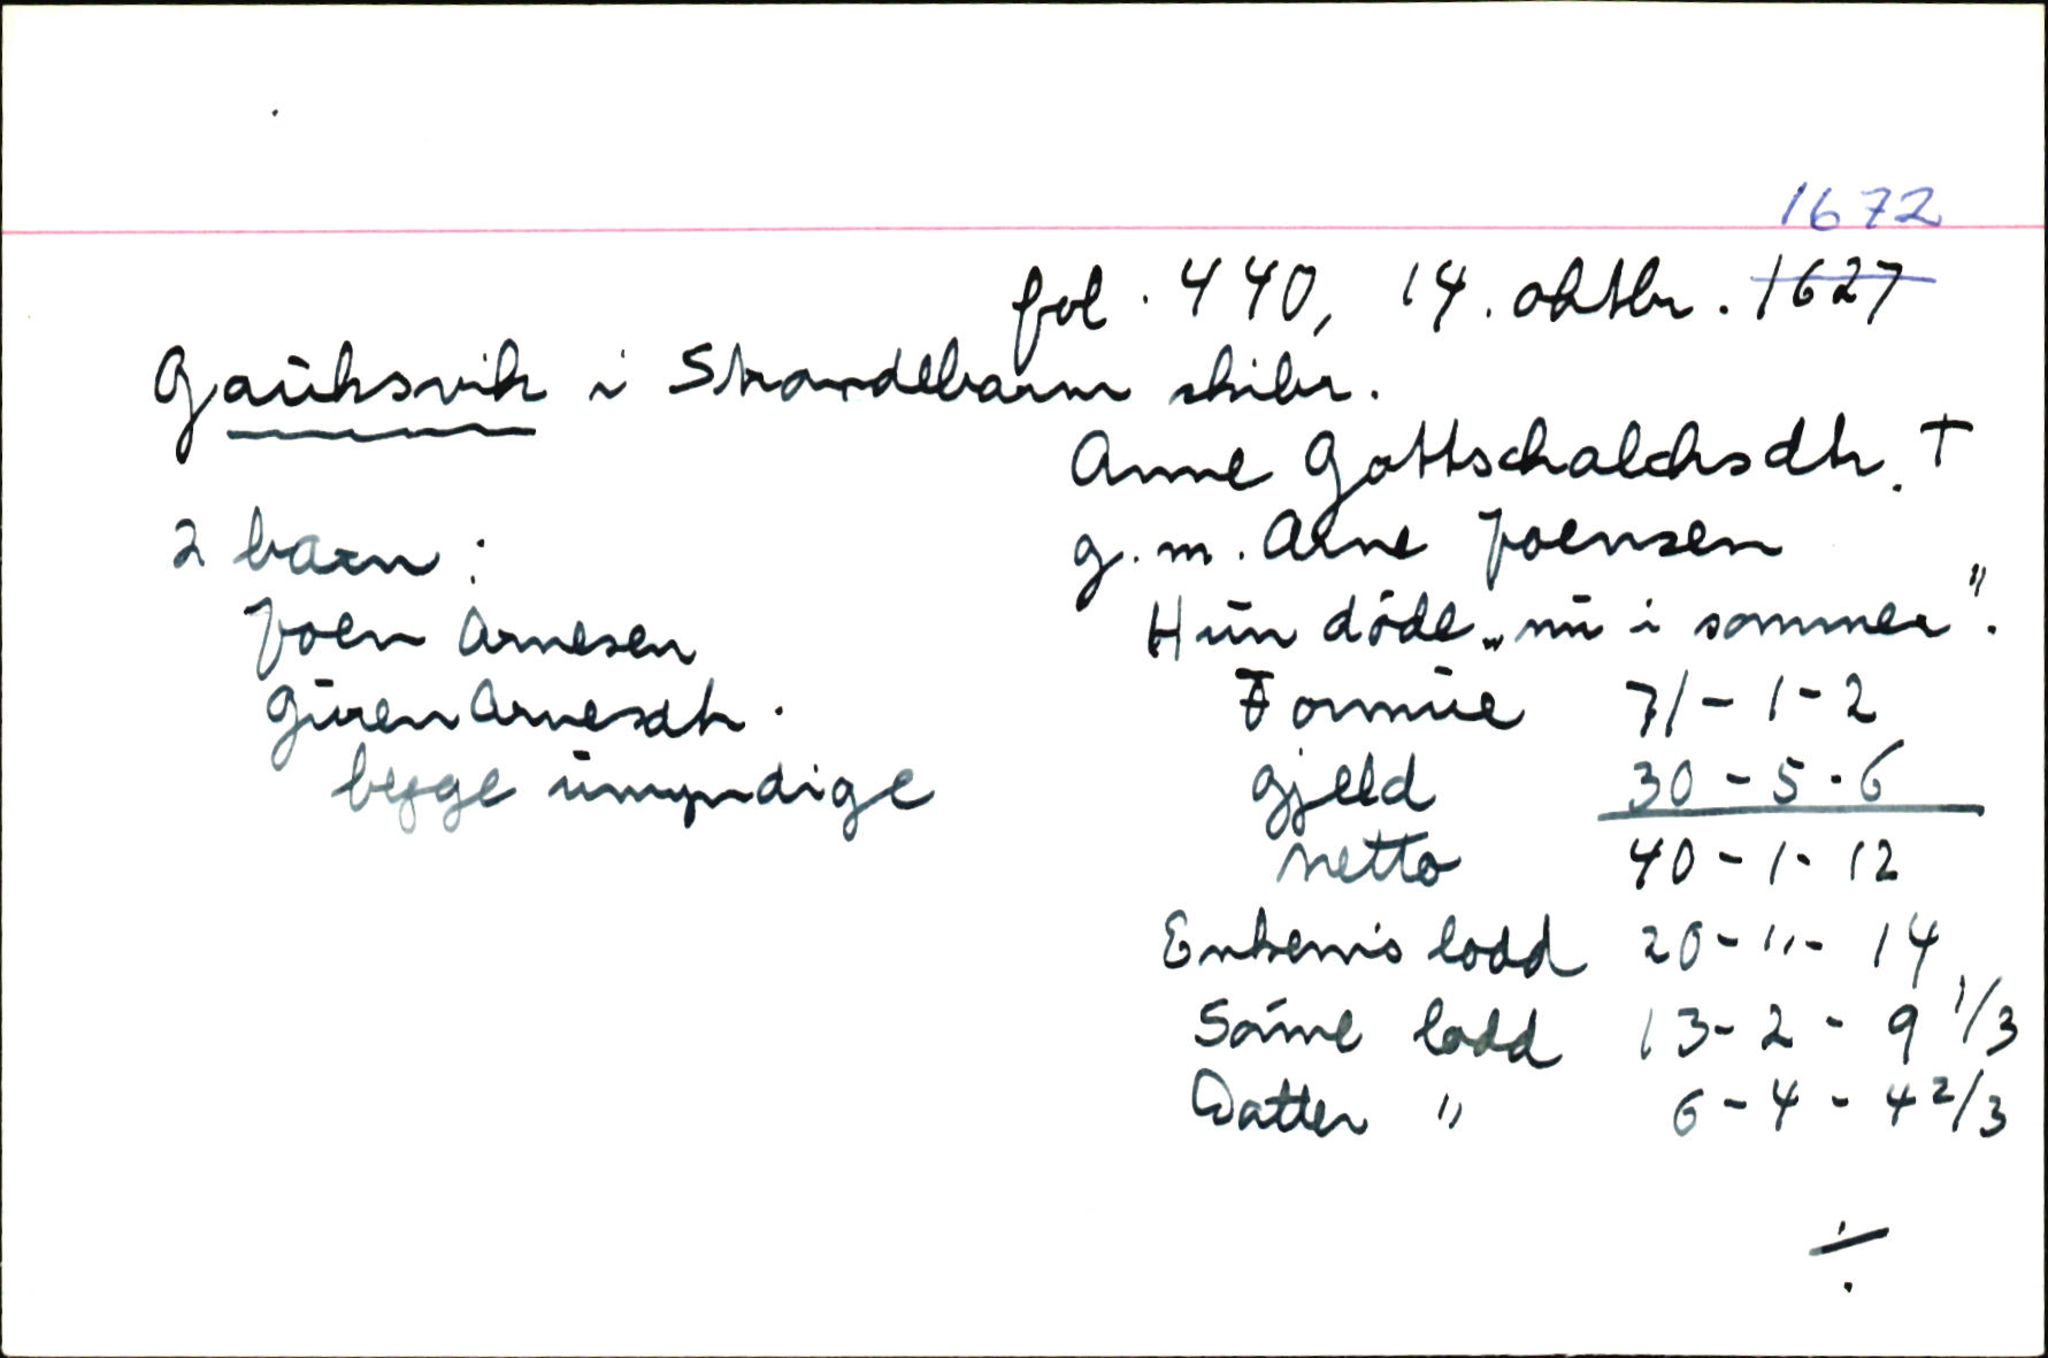 1672
fol. 440, 14. oktbr. 1627
Gauksvik i Strandebarm skibr.
Anne Gottschalchsdtr. †
g. m. Arne Joensen
Hun døde „nu i sommer".
2 barn:
Joen Arnesen
Guren Arnesdtr.
begge umyndige
Formue 71 - 1 - 2
Gjeld 30 - 5 - 6
netto 40 - 1 - 12
Enkem's lodd 20 - " - 14
Sönne lodd 13 - 2 - 9 1/3
Datter " 6 - 4 - 4 2/3
÷